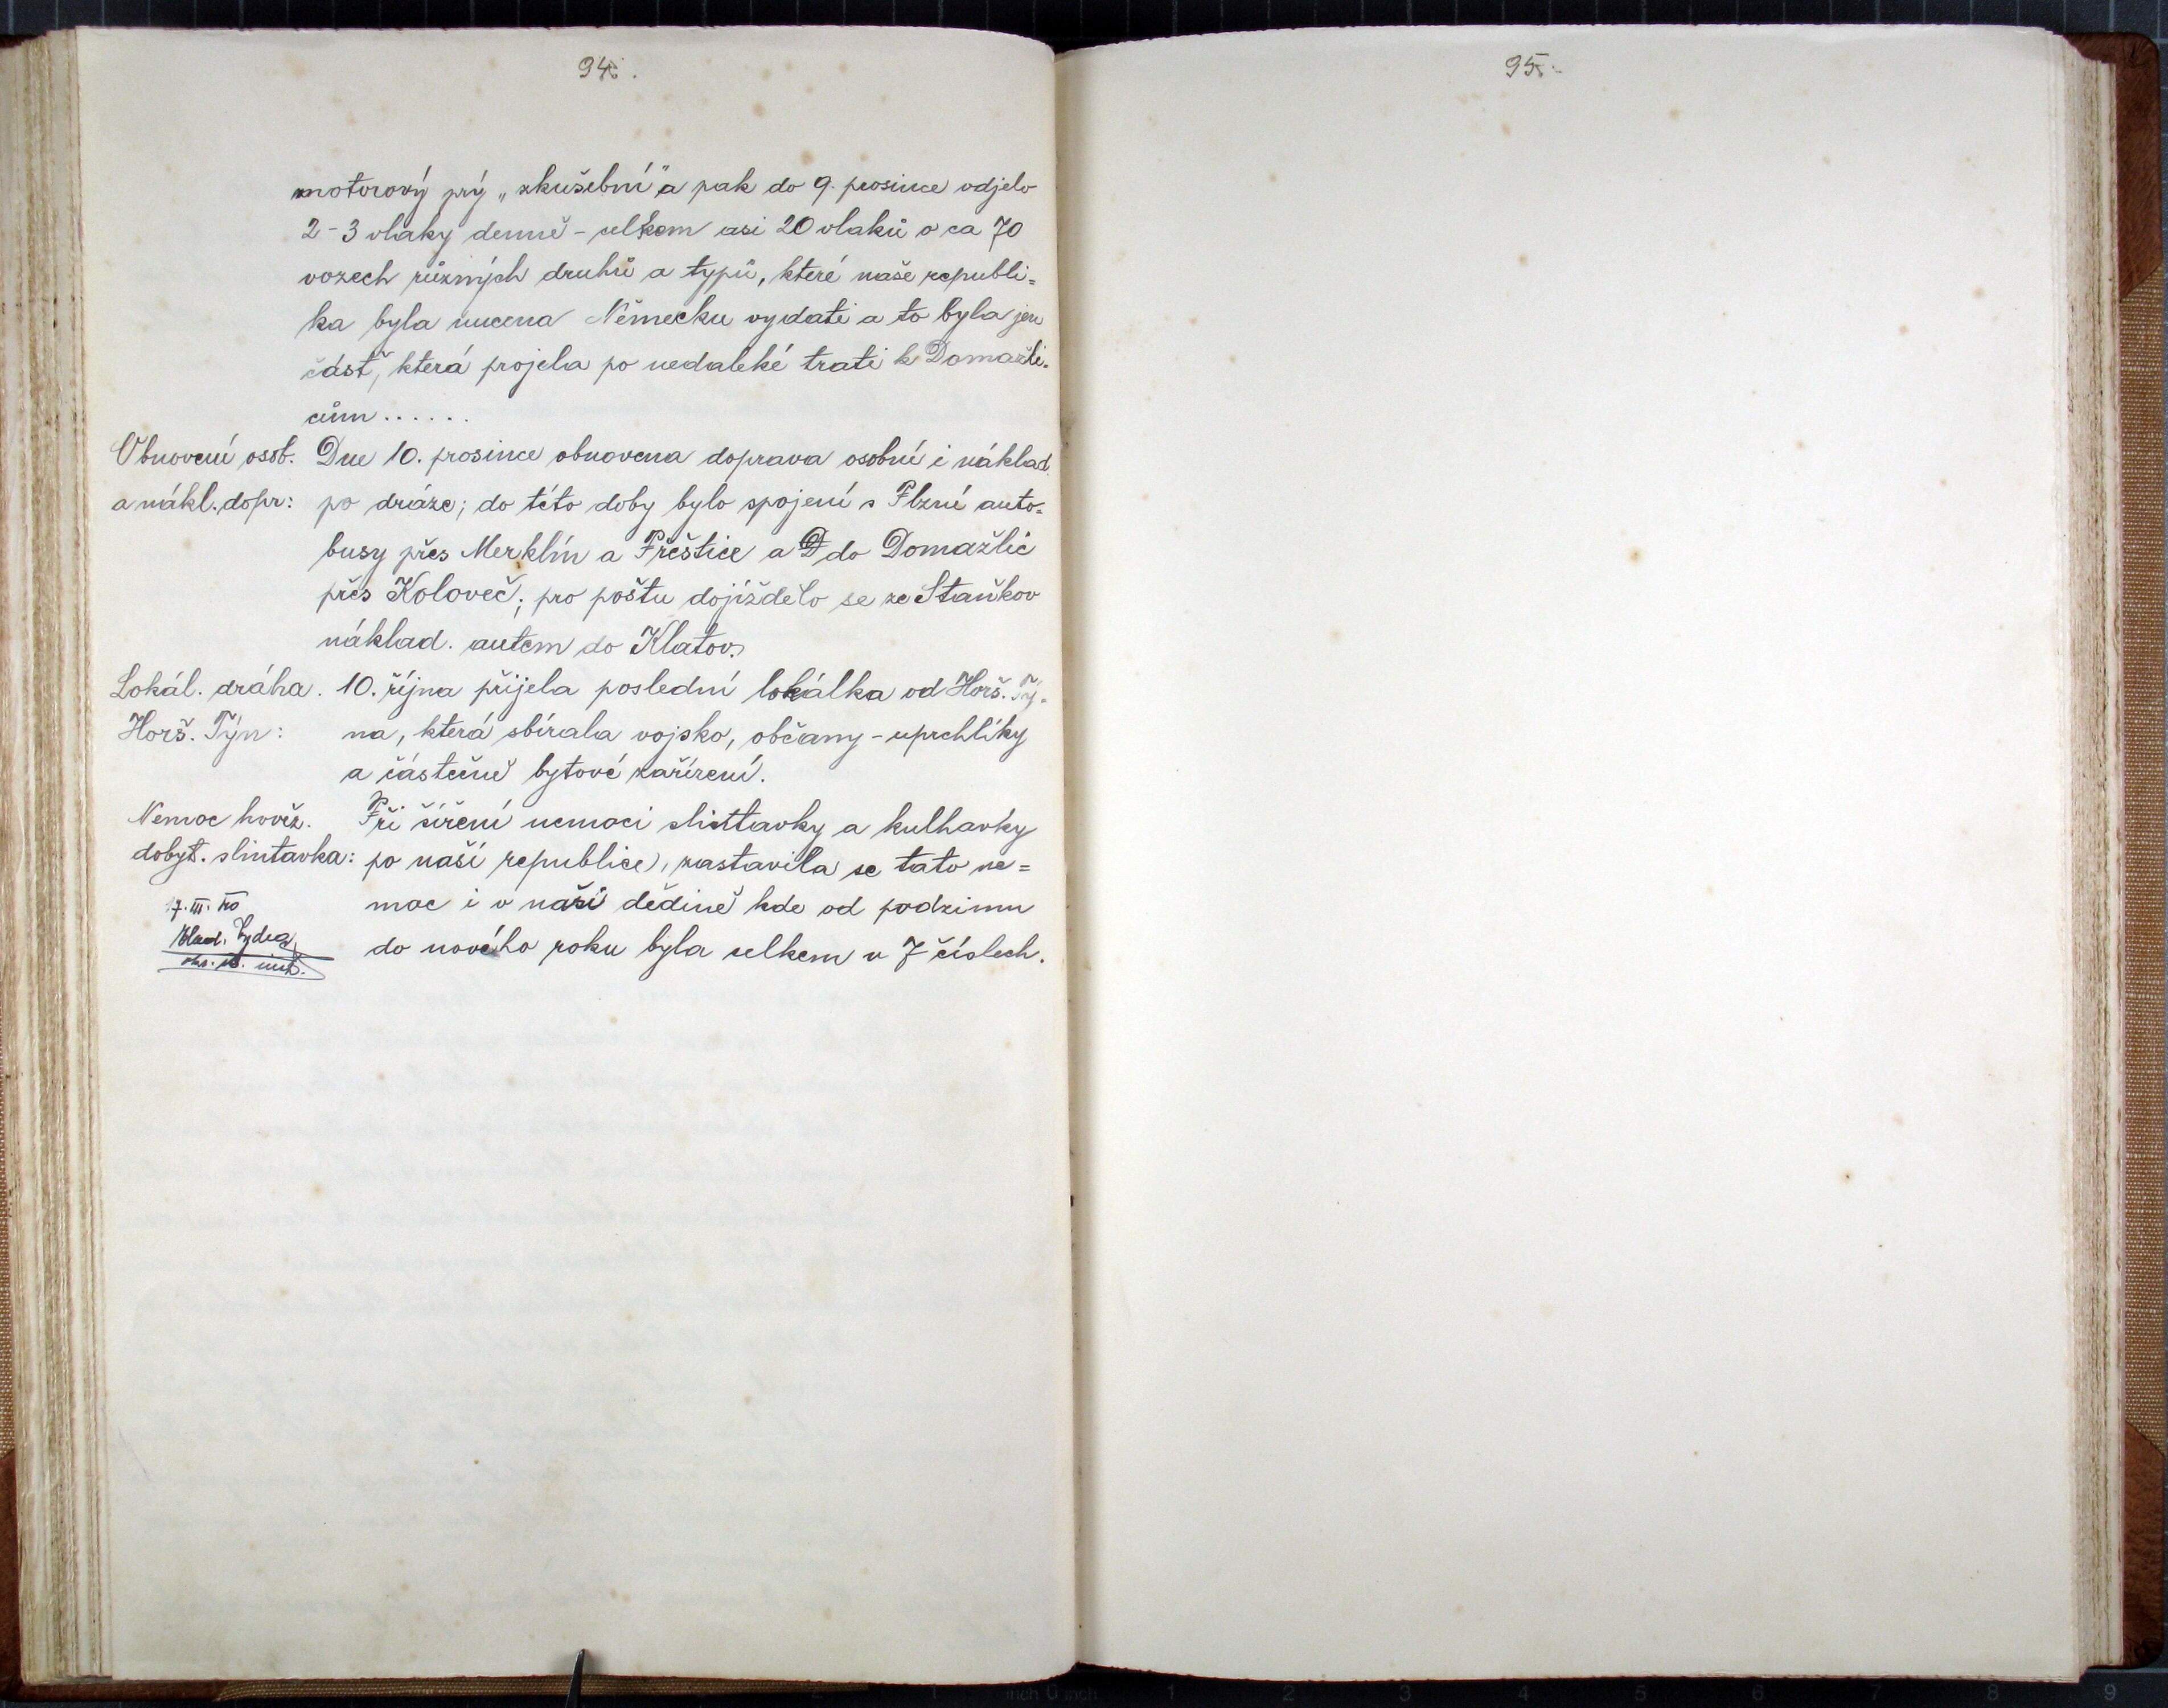 94.
motorový prý „zkušební" a pak do 9. prosince odjelo
2-3 vlaky denně - celkem asi 20 vlaků o ca 70
vozech různých druhů a typů, které naše republi=
ka byla nucena Německu vydati a to byla jen
část, která projela po nedaleké trati k Domažli-
cům......
Obnovení osob. Dne 10. prosince obnovena doprava osobní i náklad.
a nákl. dopr: po dráze; do této doby bylo spojení s Plzní auto=
busy přes Merklín a Přeštice a do Domažlic
přes Koloveč; pro poštu dojíždělo se ze Staňkov
náklad. autem do Klatov.
Lokál. dráha. 10. října přijela poslední lokálka od Horš. Tý-
Horš. Týn: na, která sbírala vojsko, občany - uprchlíky
a částečně bytové zařízení.
Nemoc hověz. Při šíření nemoci slintavky a kulhavky
dobyt. slintavka: po naší republice, zastavila se tato ne=
moc i v naší dědině kde od podzimu
do nového roku byla celkem v 7 číslech.
17. III. 40
95.